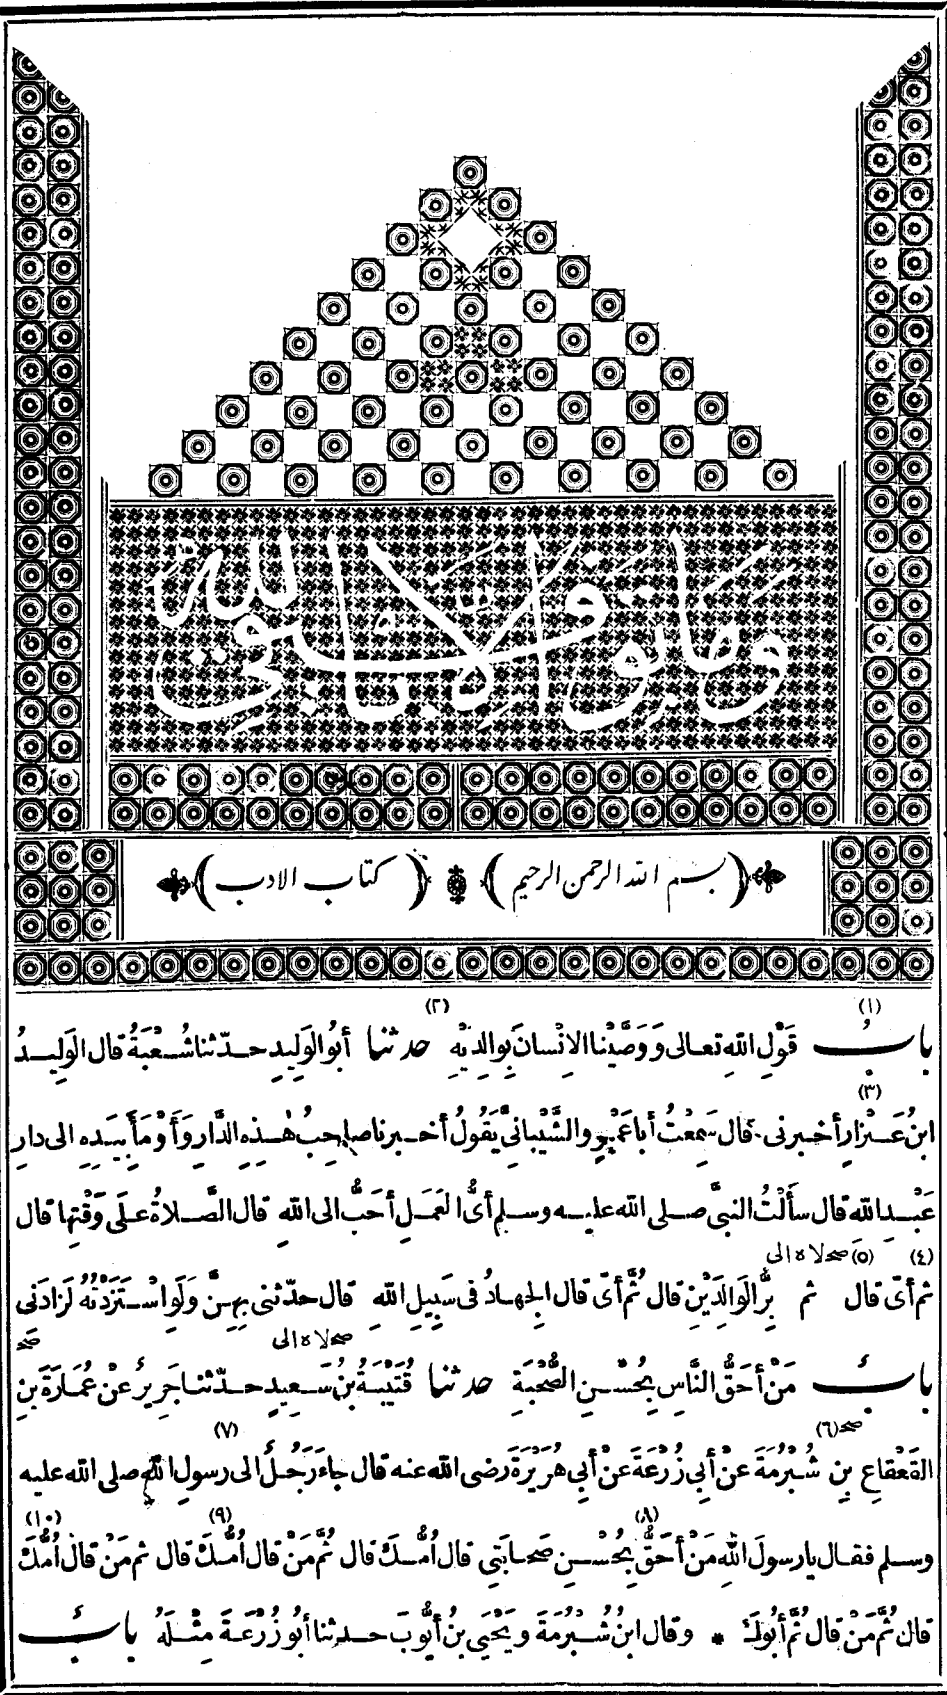 وما توفيقي الا بالله
(بسم الله الرحمن الرحيم) (كتاب الادب)
(١) (٢)
بابُ قَوْلِ اللهِ تعالى وَوَصَّيْنا الانْسانَ بِوالِدَيْهِ حدثنا أبُو الوَلِيدِ حدّثنا شُعْبَةُ قال الوَلِيدُ
(٣)
ابنُ عَيْزارٍ أخبرني قال سَمِعْتُ أبا عَمْرٍو الشَّيْبانيَّ يَقُولُ أخبرنا صاحِبُ هٰذِهِ الدَّارِ وَأَوْمَأَ بِيَدِهِ الى دارِ
عَبْدِ اللهِ قال سأَلْتُ النبيَّ صلى الله عليه وسلم أيُّ العَمَلِ أحَبُّ الى اللهِ قال الصَّلاةُ علَى وَقْتِها قال
(٤) (٥) صحـ لا ه الى
ثم أيّ قال ثم بِرُّ الوَالِدَيْنِ قال ثُمَّ أيّ قال الجِهادُ في سَبِيلِ اللهِ قال حدّثني بِهِنَّ وَلَوِ اسْتَزَدْتُهُ لَزادَني
صحـ لا ه الى صحـ
بابُ مَنْ أحَقُّ النَّاسِ بِحُسْنِ الصُّحْبَةِ حدثنا قُتَيْبَةُ بنُ سَعِيدٍ حدّثنا جَرِيرٌ عَنْ عُمَارَةَ بنِ
صحـ (٦) (٧)
القَعْقاعِ بنِ شُبْرُمَةَ عَنْ أبي زُرْعَةَ عَنْ أبي هُرَيْرَةَ رضى الله عنه قال جاءَ رَجُلٌ الى رسولِ اللهِ صلى الله عليه
(٨) (٩) (١٠)
وسلم فقال يا رسولَ اللهِ مَنْ أحَقُّ بِحُسْنِ صَحابَتِي قال أُمُّكَ قال ثُمَّ مَنْ قال أُمُّكَ قال ثم مَنْ قال أُمُّكَ
قال ثُمَّ مَنْ قال ثُمَّ أبُوكَ * وقال ابنُ شُبْرُمَةَ ويَحْيَى بنُ أيُّوبَ حدثنا أبُو زُرْعَةَ مِثْلَهُ بابُ